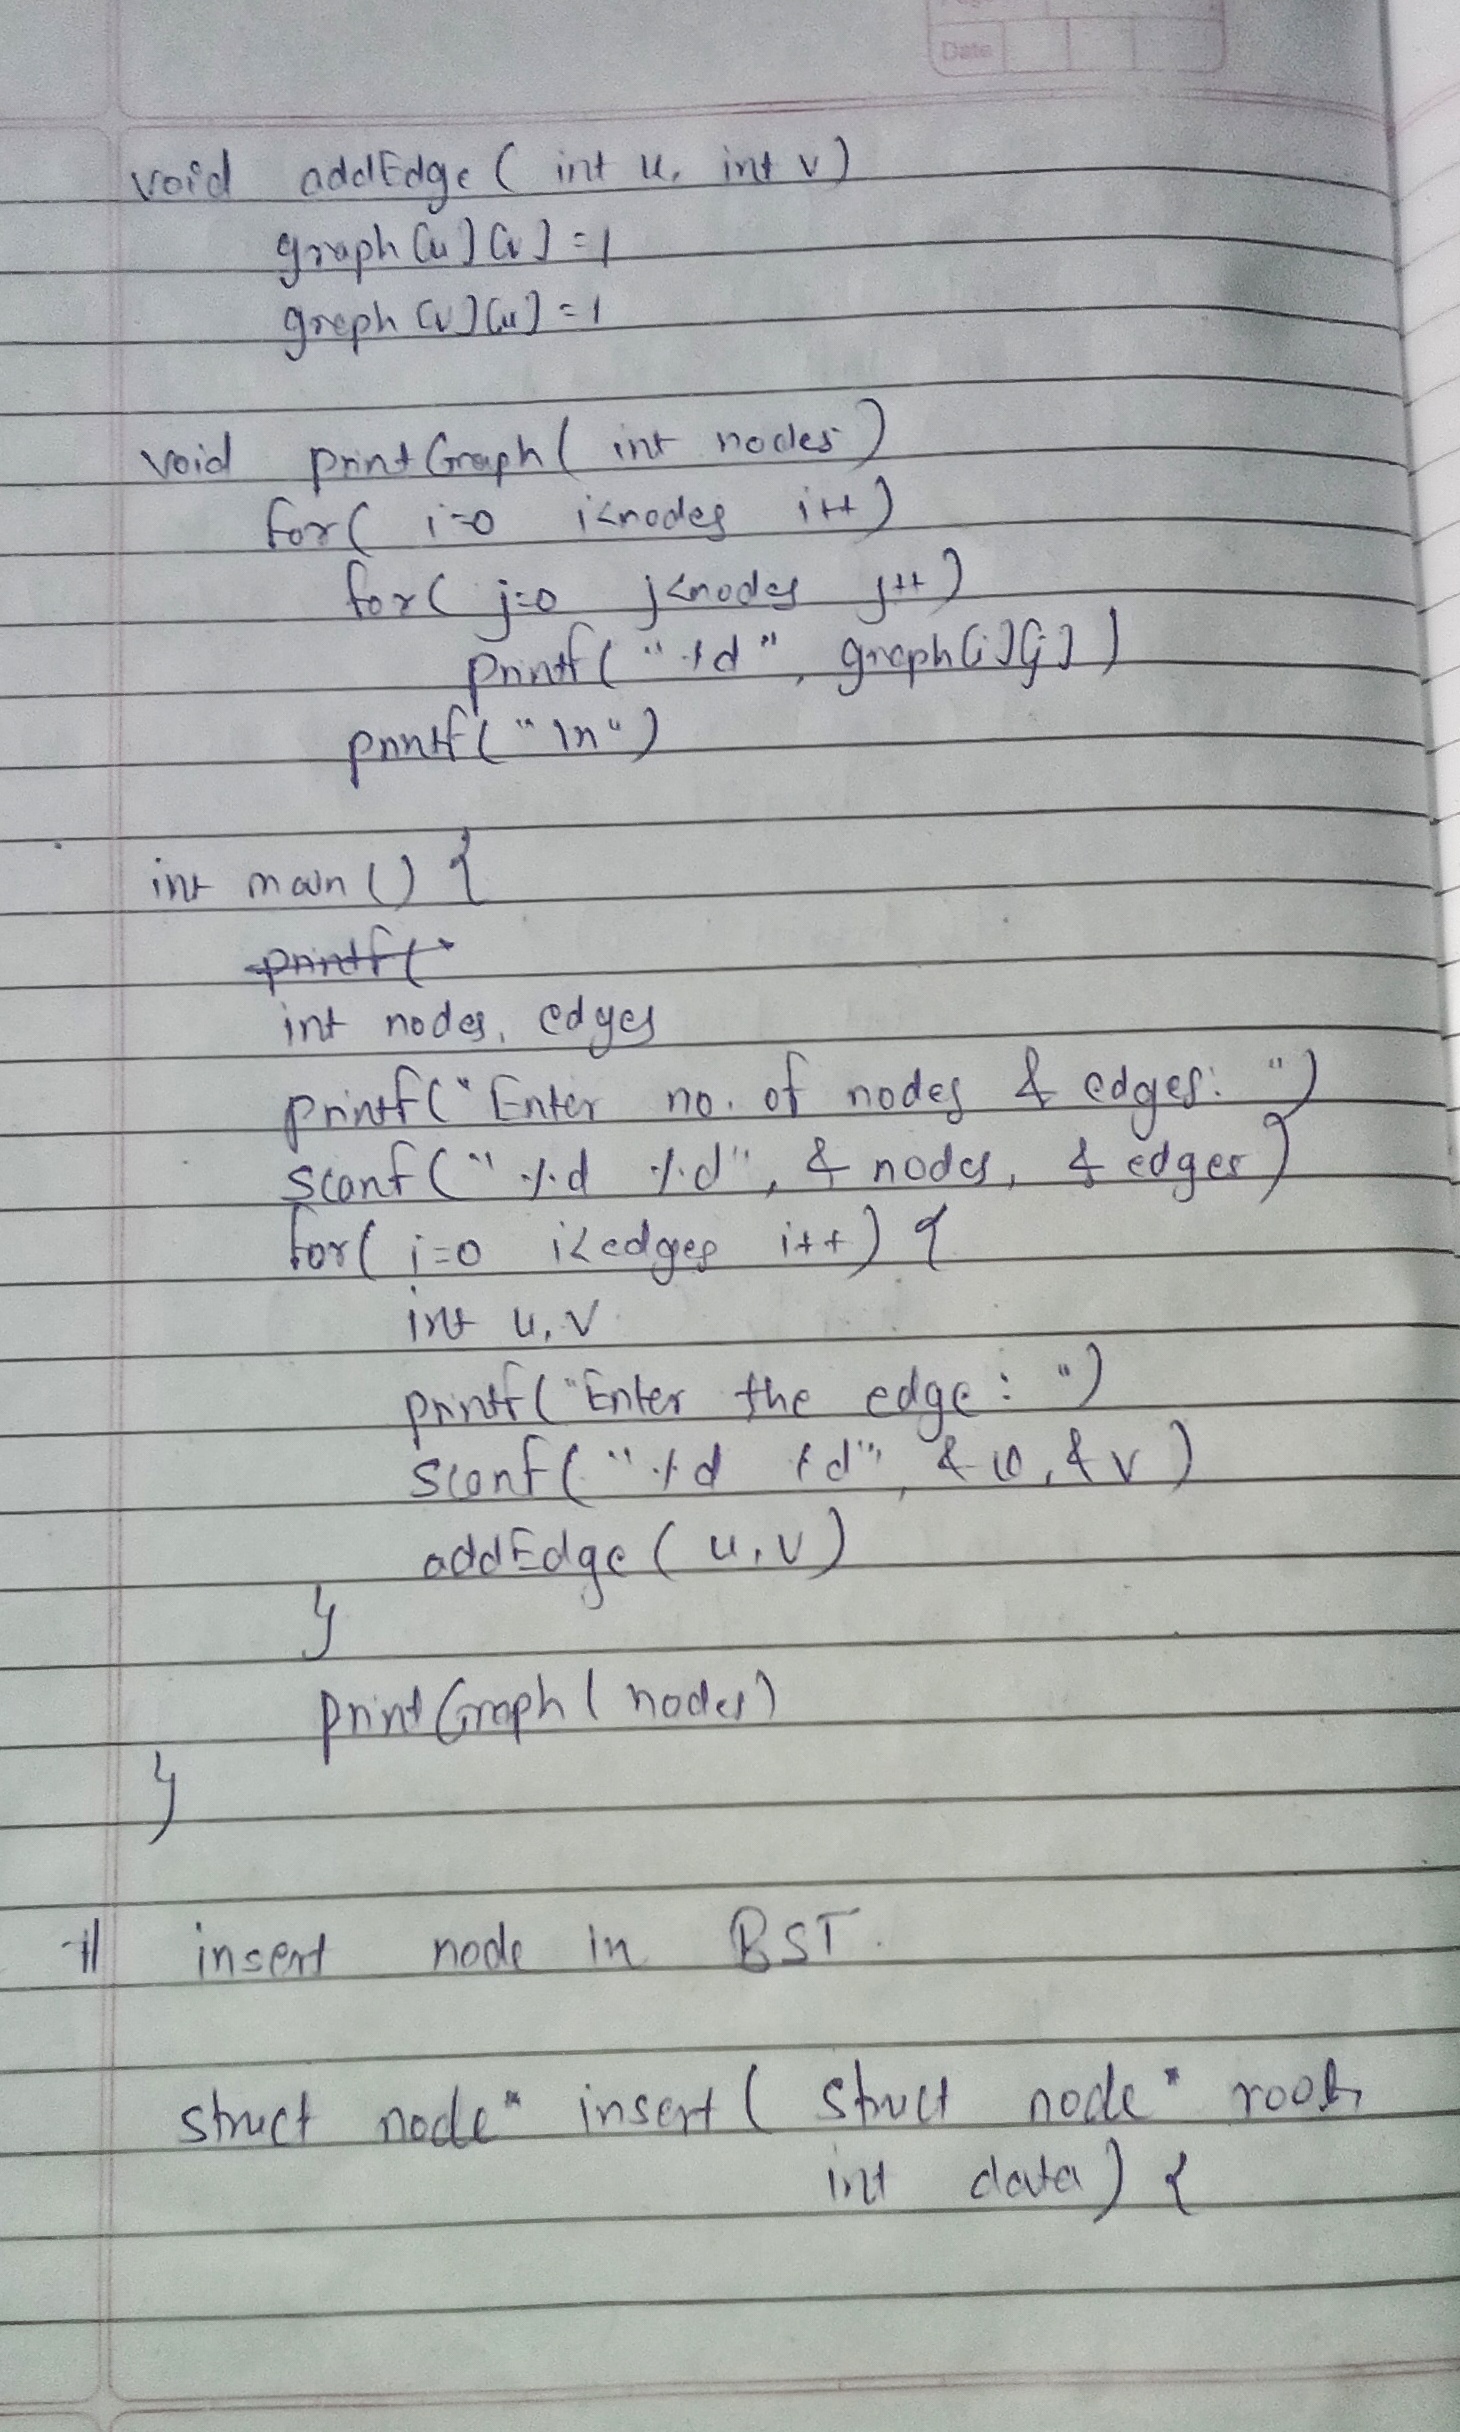 Date
void addEdge ( int u, int v)
graph[u][v]=1
graph[v][u]=1
void printGraph( int nodes)
for( i=0 i<nodes i++)
for( j=0 j<nodes j++)
printf( "%d", graph[i][j])
printf("\n")
int main() {
printf("
int nodes, edges
printf("Enter no. of nodes & edges: ")
scanf("%d %d", & nodes, & edges)
for( i=0 i<edges i++) {
int u, v
printf("Enter the edge : ")
scanf("%d %d", &u, &v)
addEdge( u, v)
}
printGraph( nodes)
}
insert node in BST.
struct node* insert( struct node* root,
int data) {